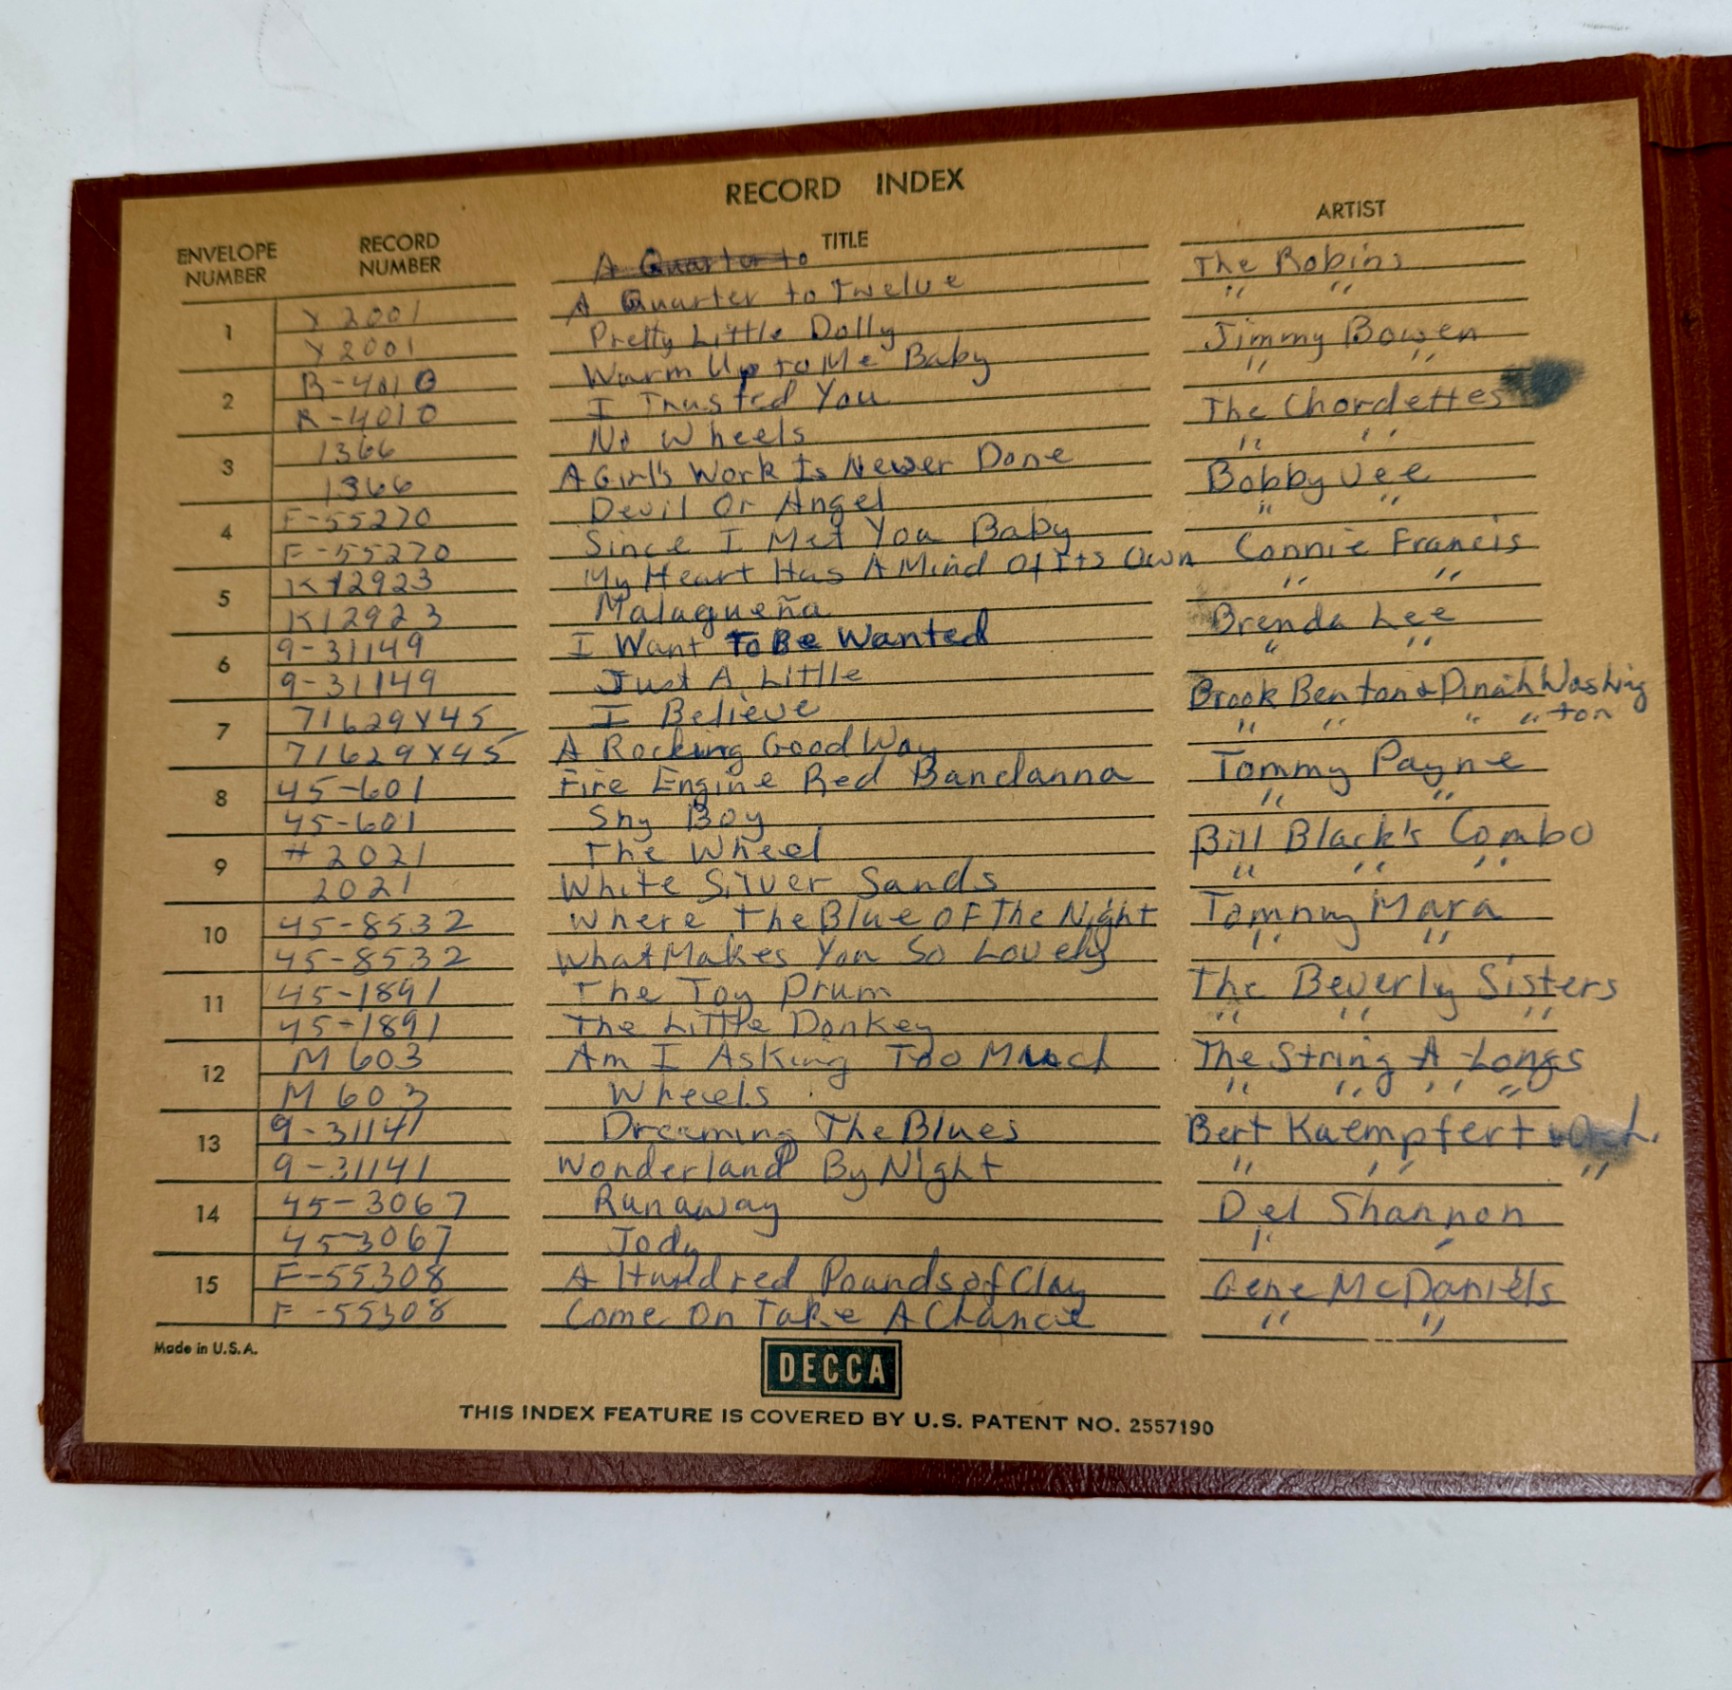 RECORD INDEX
ENVELOPE NUMBER RECORD NUMBER TITLE ARTIST
A Quarter to
1 Y 2001 A Quarter to Twelve The Robins
Y 2001 Pretty Little Dolly " "
2 R-4010 Warm Up to Me Baby Jimmy Bowen
R-4010 I Trusted You " "
3 1366 No Wheels The Chordettes
1366 A Girl's Work Is Never Done " "
4 F-55270 Devil Or Angel Bobby Vee
F-55270 Since I Met You Baby " "
5 K12923 My Heart Has A Mind Of Its Own Connie Francis
K12923 Malagueña " "
6 9-31149 I Want To Be Wanted Brenda Lee
9-31149 Just A Little " "
7 71629X45 I Believe Brook Benton & Dinah Washington
71629X45 A Rocking Good Way " " " "
8 45-601 Fire Engine Red Bandanna Tommy Payne
45-601 Shy Boy " "
9 # 2021 The Wheel Bill Black's Combo
2021 White Silver Sands " " "
10 45-8532 Where The Blue Of The Night Tommy Mara
45-8532 What Makes You So Lovely " "
11 45-1891 The Toy Drum The Beverly Sisters
45-1891 The Little Donkey " " "
12 M 603 Am I Asking Too Much The String A Longs
M 603 Wheels " " " "
13 9-31141 Dreaming The Blues Bert Kaempfert
9-31141 Wonderland By Night " " "
14 45-3067 Runaway Del Shannon
45-3067 Jody " "
15 F-55308 A Hundred Pounds of Clay Gene McDaniels
F-55308 Come On Take A Chance " "
Made in U.S.A.
DECCA
THIS INDEX FEATURE IS COVERED BY U.S. PATENT NO. 2557190